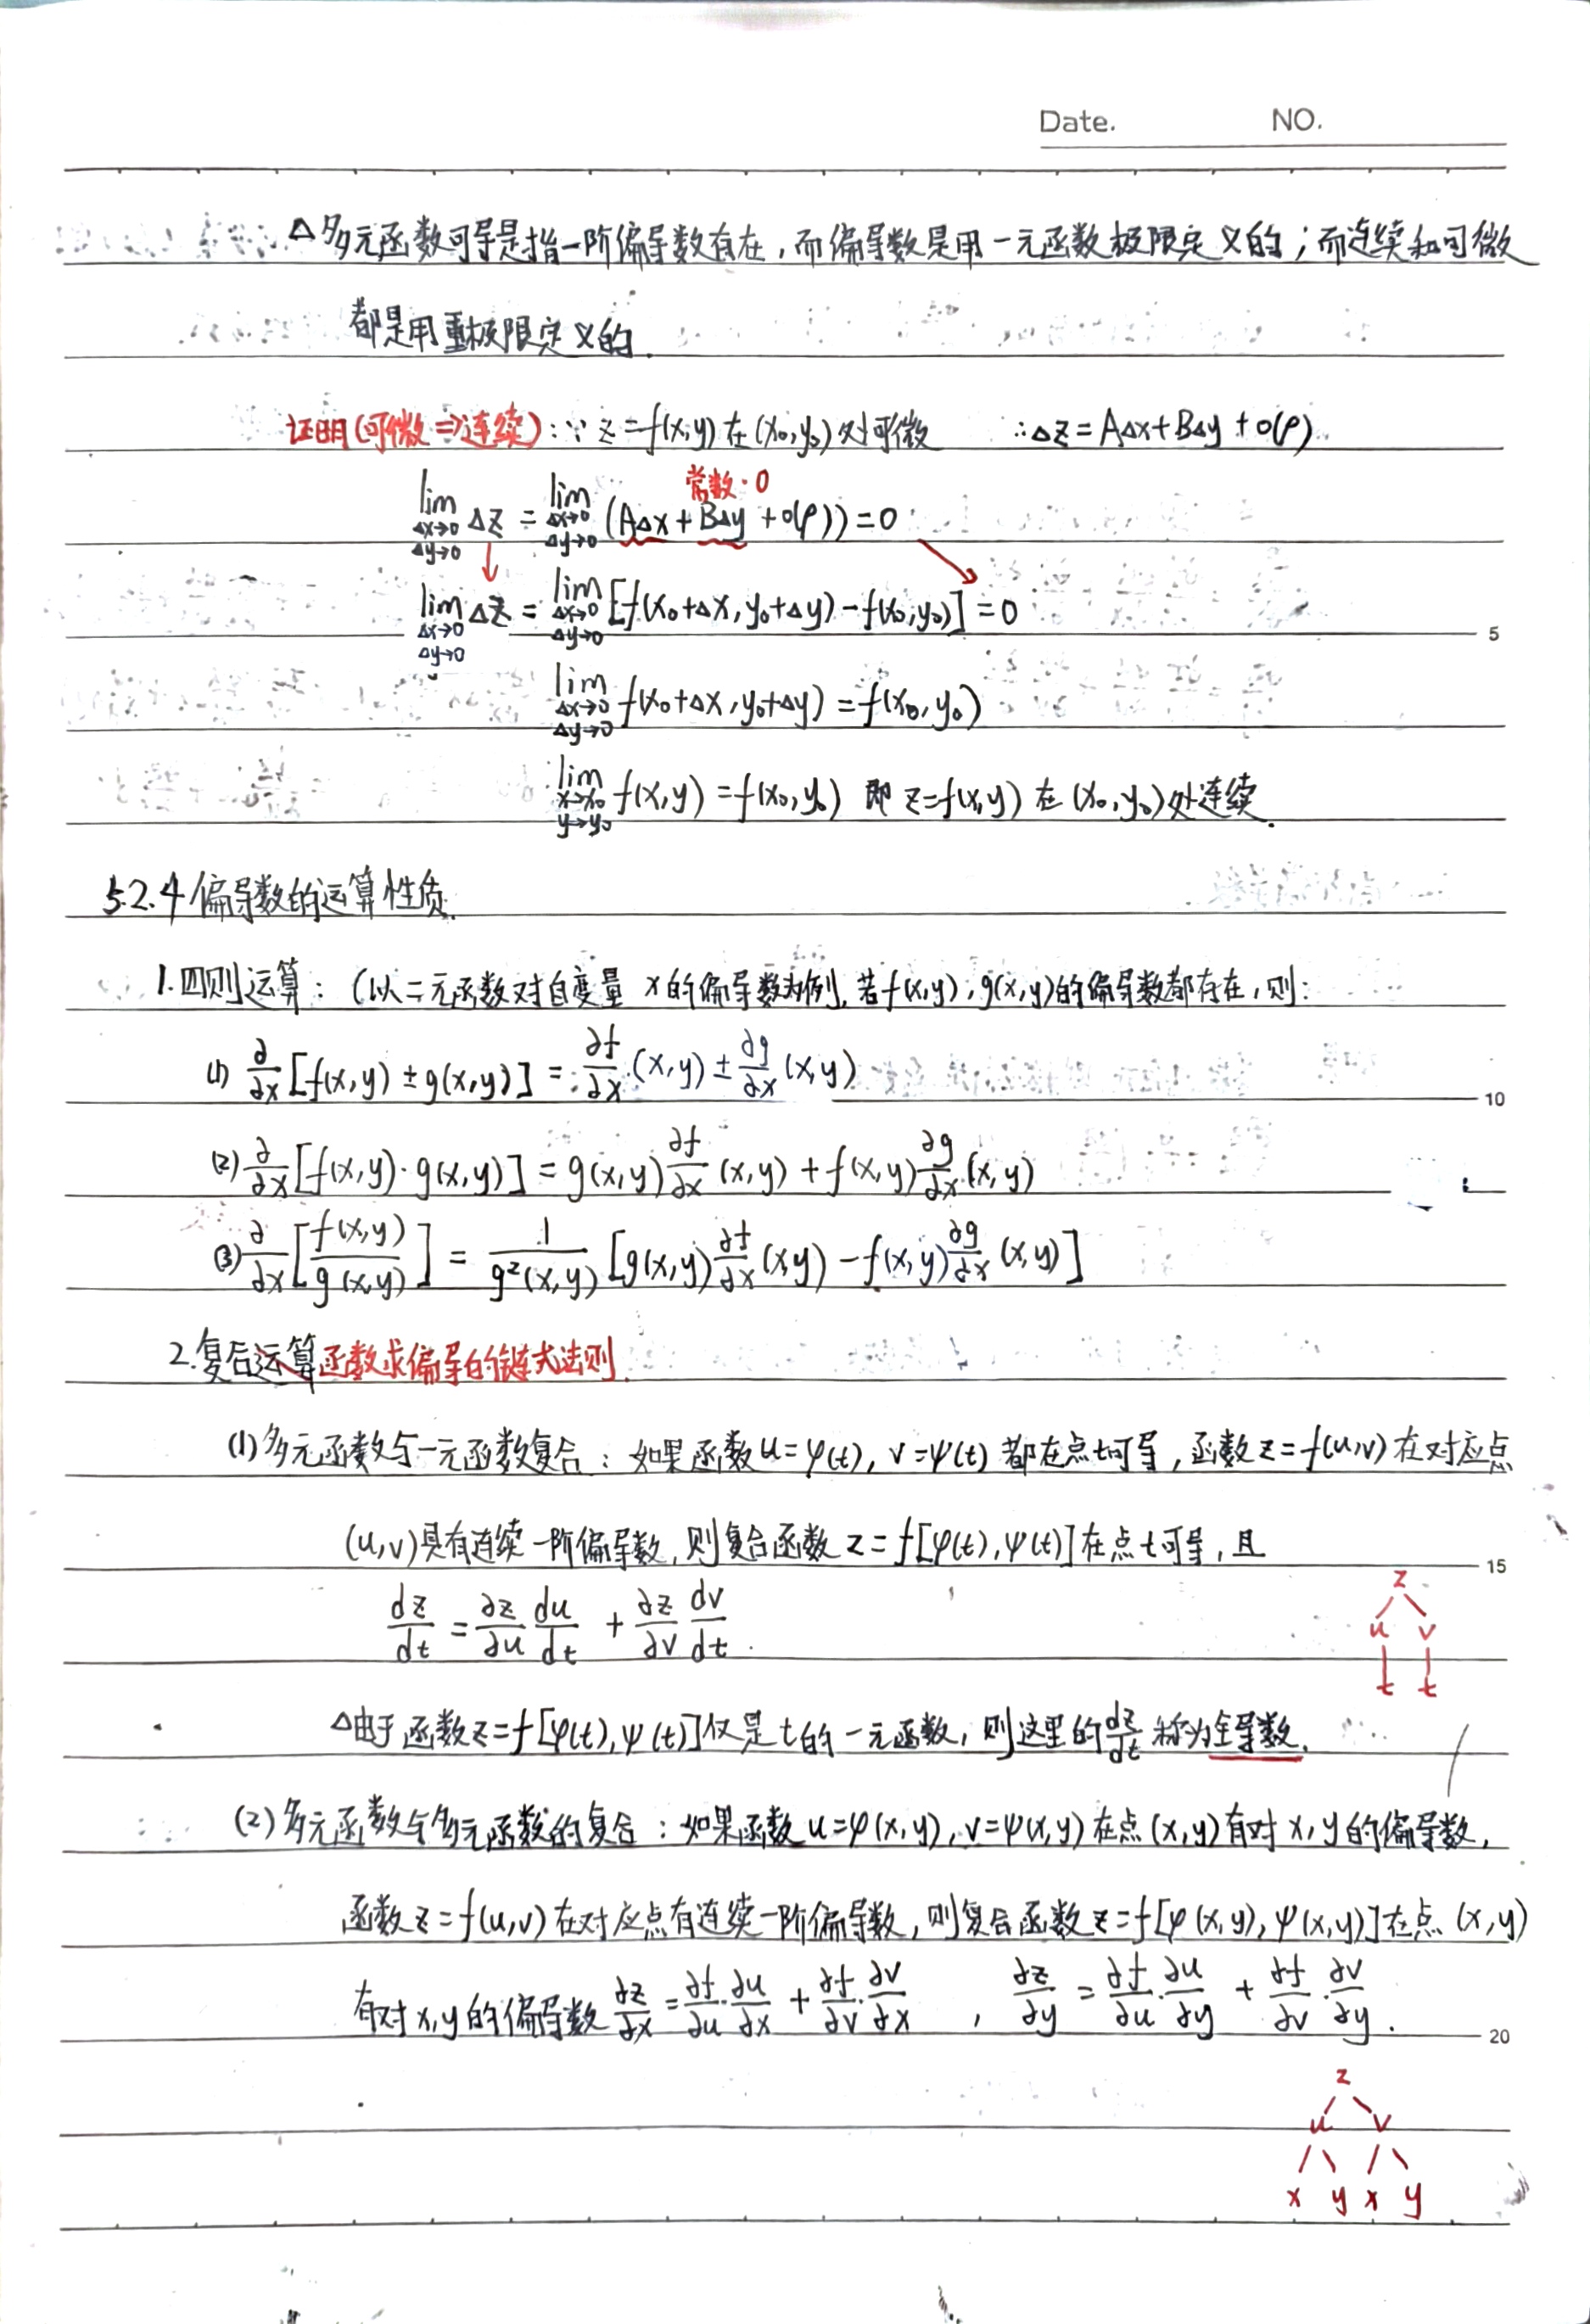 Date. NO.
△多元函数可导是指一阶偏导数存在，而偏导数是用一元函数极限定义的；而连续和可微
都是用重极限定义的.
证明(可微⇒连续)：∵ z=f(x,y)在(x₀,y₀)处可微 ∴Δz=AΔx+BΔy+o(ρ)
常数·0
lim Δx→0 Δy→0 Δz = lim Δx→0 Δy→0 (AΔx+BΔy+o(ρ))=0
lim Δx→0 Δy→0 Δz = lim Δx→0 Δy→0 [f(x₀+Δx,y₀+Δy)-f(x₀,y₀)]=0
5
lim Δx→0 Δy→0 f(x₀+Δx,y₀+Δy)=f(x₀,y₀)
lim x→x₀ y→y₀ f(x,y)=f(x₀,y₀) 即 z=f(x,y) 在(x₀,y₀)处连续.
5.2.4 偏导数的运算性质.
1.四则运算：(以二元函数对自变量 x的偏导数为例,若f(x,y),g(x,y)的偏导数都存在,则:
(1) ∂/∂x [f(x,y)±g(x,y)] = ∂f/∂x (x,y) ± ∂g/∂x (x,y)
10
(2) ∂/∂x [f(x,y)·g(x,y)] = g(x,y) ∂f/∂x (x,y) + f(x,y) ∂g/∂x (x,y)
(3) ∂/∂x [f(x,y)/g(x,y)] = 1/g²(x,y) [g(x,y) ∂f/∂x (x,y) - f(x,y) ∂g/∂x (x,y)]
2.复合运算函数求偏导的链式法则.
(1)多元函数与一元函数复合：如果函数u=φ(t), v=ψ(t) 都在点t可导,函数z=f(u,v)在对应点
(u,v)具有连续一阶偏导数,则复合函数 z=f[φ(t),ψ(t)]在点t可导,且
15
dz/dt = ∂z/∂u du/dt + ∂z/∂v dv/dt.
z
u v
t t
△由于函数z=f[φ(t),ψ(t)]仅是t的一元函数,则这里的dz/dt称为全导数.
(2)多元函数与多元函数的复合：如果函数u=φ(x,y), v=ψ(x,y)在点(x,y)有对x,y的偏导数,
函数z=f(u,v)在对应点有连续一阶偏导数,则复合函数z=f[φ(x,y),ψ(x,y)]在点(x,y)
有对x,y的偏导数 ∂z/∂x = ∂f/∂u·∂u/∂x + ∂f/∂v·∂v/∂x , ∂z/∂y = ∂f/∂u·∂u/∂y + ∂f/∂v·∂v/∂y.
20
z
u v
x y x y